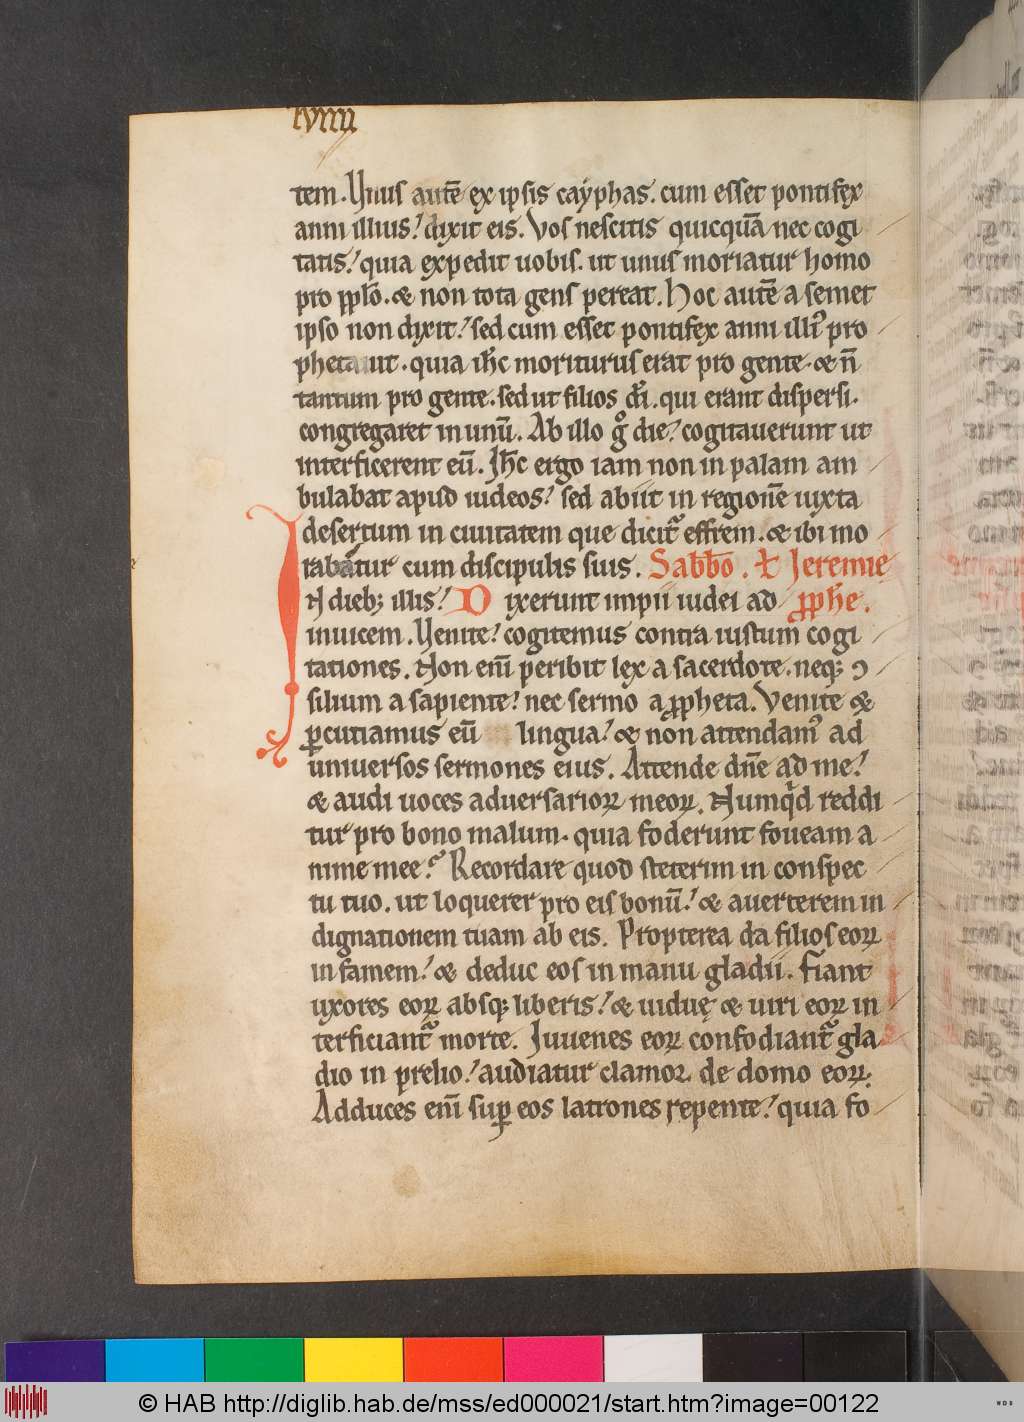 lviiii
tem. Unus autē ex ipsis cayphas. cum esset pontifex
anni illius! dixit eis. Vos nescitis quicquā nec cogi
tatis! quia expedit uobis. ut unus moriatur homo
pro pplo̅. & non tota gens pereat. Hoc autē a semet
ipso non dixit! sed cum esset pontifex anni illiꝰ pro
phetauit. quia ih̅c moriturus erat pro gente. & n̅
tantum pro gente. sed ut filios di̅. qui erant dispersi.
congregaret in unū. Ab illo gͦ die! cogitauerunt ut
interficerent eū. Ih̅c ergo iam non in palam am
bulabat apud iudeos! sed abiit in regionē iuxta
desertum in ciuitatem que dicit᷑ effrem. & ibi mo
rabatur cum discipulis suis. Sabb̅o. Ꝉ Jeremie
IN dieb; illis! Dixerunt impii iudei ad pph̅e.
inuicem. Uenite! cogitemus contra iustum cogi
tationes. Non eni̅ peribit lex a sacerdote. neq; ↄ
silium a sapiente! nec sermo a ppheta. Venite &
ꝑcutiamus eū lingua! & non attendamꝰ ad
uniuersos sermones eius. Attende dn̅e ad me!
& audi uoces aduersarioꝝ meoꝝ. Numqͥd reddi
tur pro bono malum. quia foderunt foueam a
nime mee? Recordare quod steterim in conspec
tu tuo. ut loquerer pro eis bonū! & auerterem in
dignationem tuam ab eis. Propterea da filios eoꝝ
in famem! & deduc eos in manu gladii. Fiant
uxores eoꝝ absq; liberis! & uiduę & uiri eoꝝ in
terficiant᷑ morte. Juuenes eoꝝ confodiant᷑ gla
dio in prelio! audiatur clamor de domo eoꝝ.
Adduces eni̅ suꝑ eos latrones repente! quia fo
© HAB http://diglib.hab.de/mss/ed000021/start.htm?image=00122